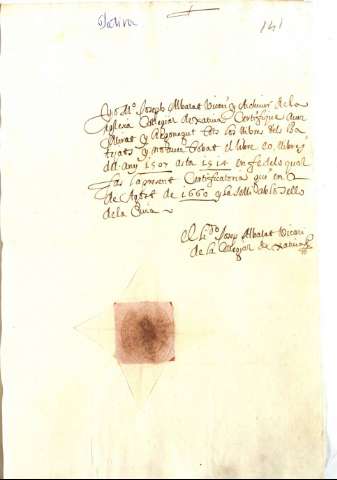 Xativa
141
Yo Mº. Joseph Albalat Vicari y Archiver de la
Iglesia Collegial de Xativa Certifique aver
Mirat y Regonegut tots los llibres dels Ba
tejats y no aver trobat el llibre eo llibres
del any 1507 asta 1514 en fe de lo qual
fas la present Certificatoria que es en 6
de Agost de 1660 y la selli ab lo sello
de la Curia
El Lido Josep Albalat Vicari
de la Collegial de Xativa